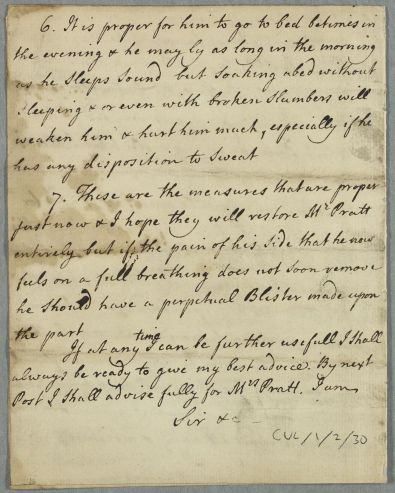 6. It is proper for him to go to bed betimes in
the evening & he may ly as long in the morning
as he Sleeps Sound but Soaking abed without
Sleeping & or even with broken Slumbers will
weaken him & hurt him much, especially if he
has any disposition to Sweat
7. These are the measures that are proper
just now & I hope they will restore Mr Pratt
entirely but if the pain of his Side that he now
feels on a full breathing does not soon remove
he should have a perpetual Blister made upon
the part
If at any time I can be further usefull I shall
always be ready to give my best advice. By next
Post I shall advise fully for Mrs Pratt. I am
Sir &c
CUL/1/2/30